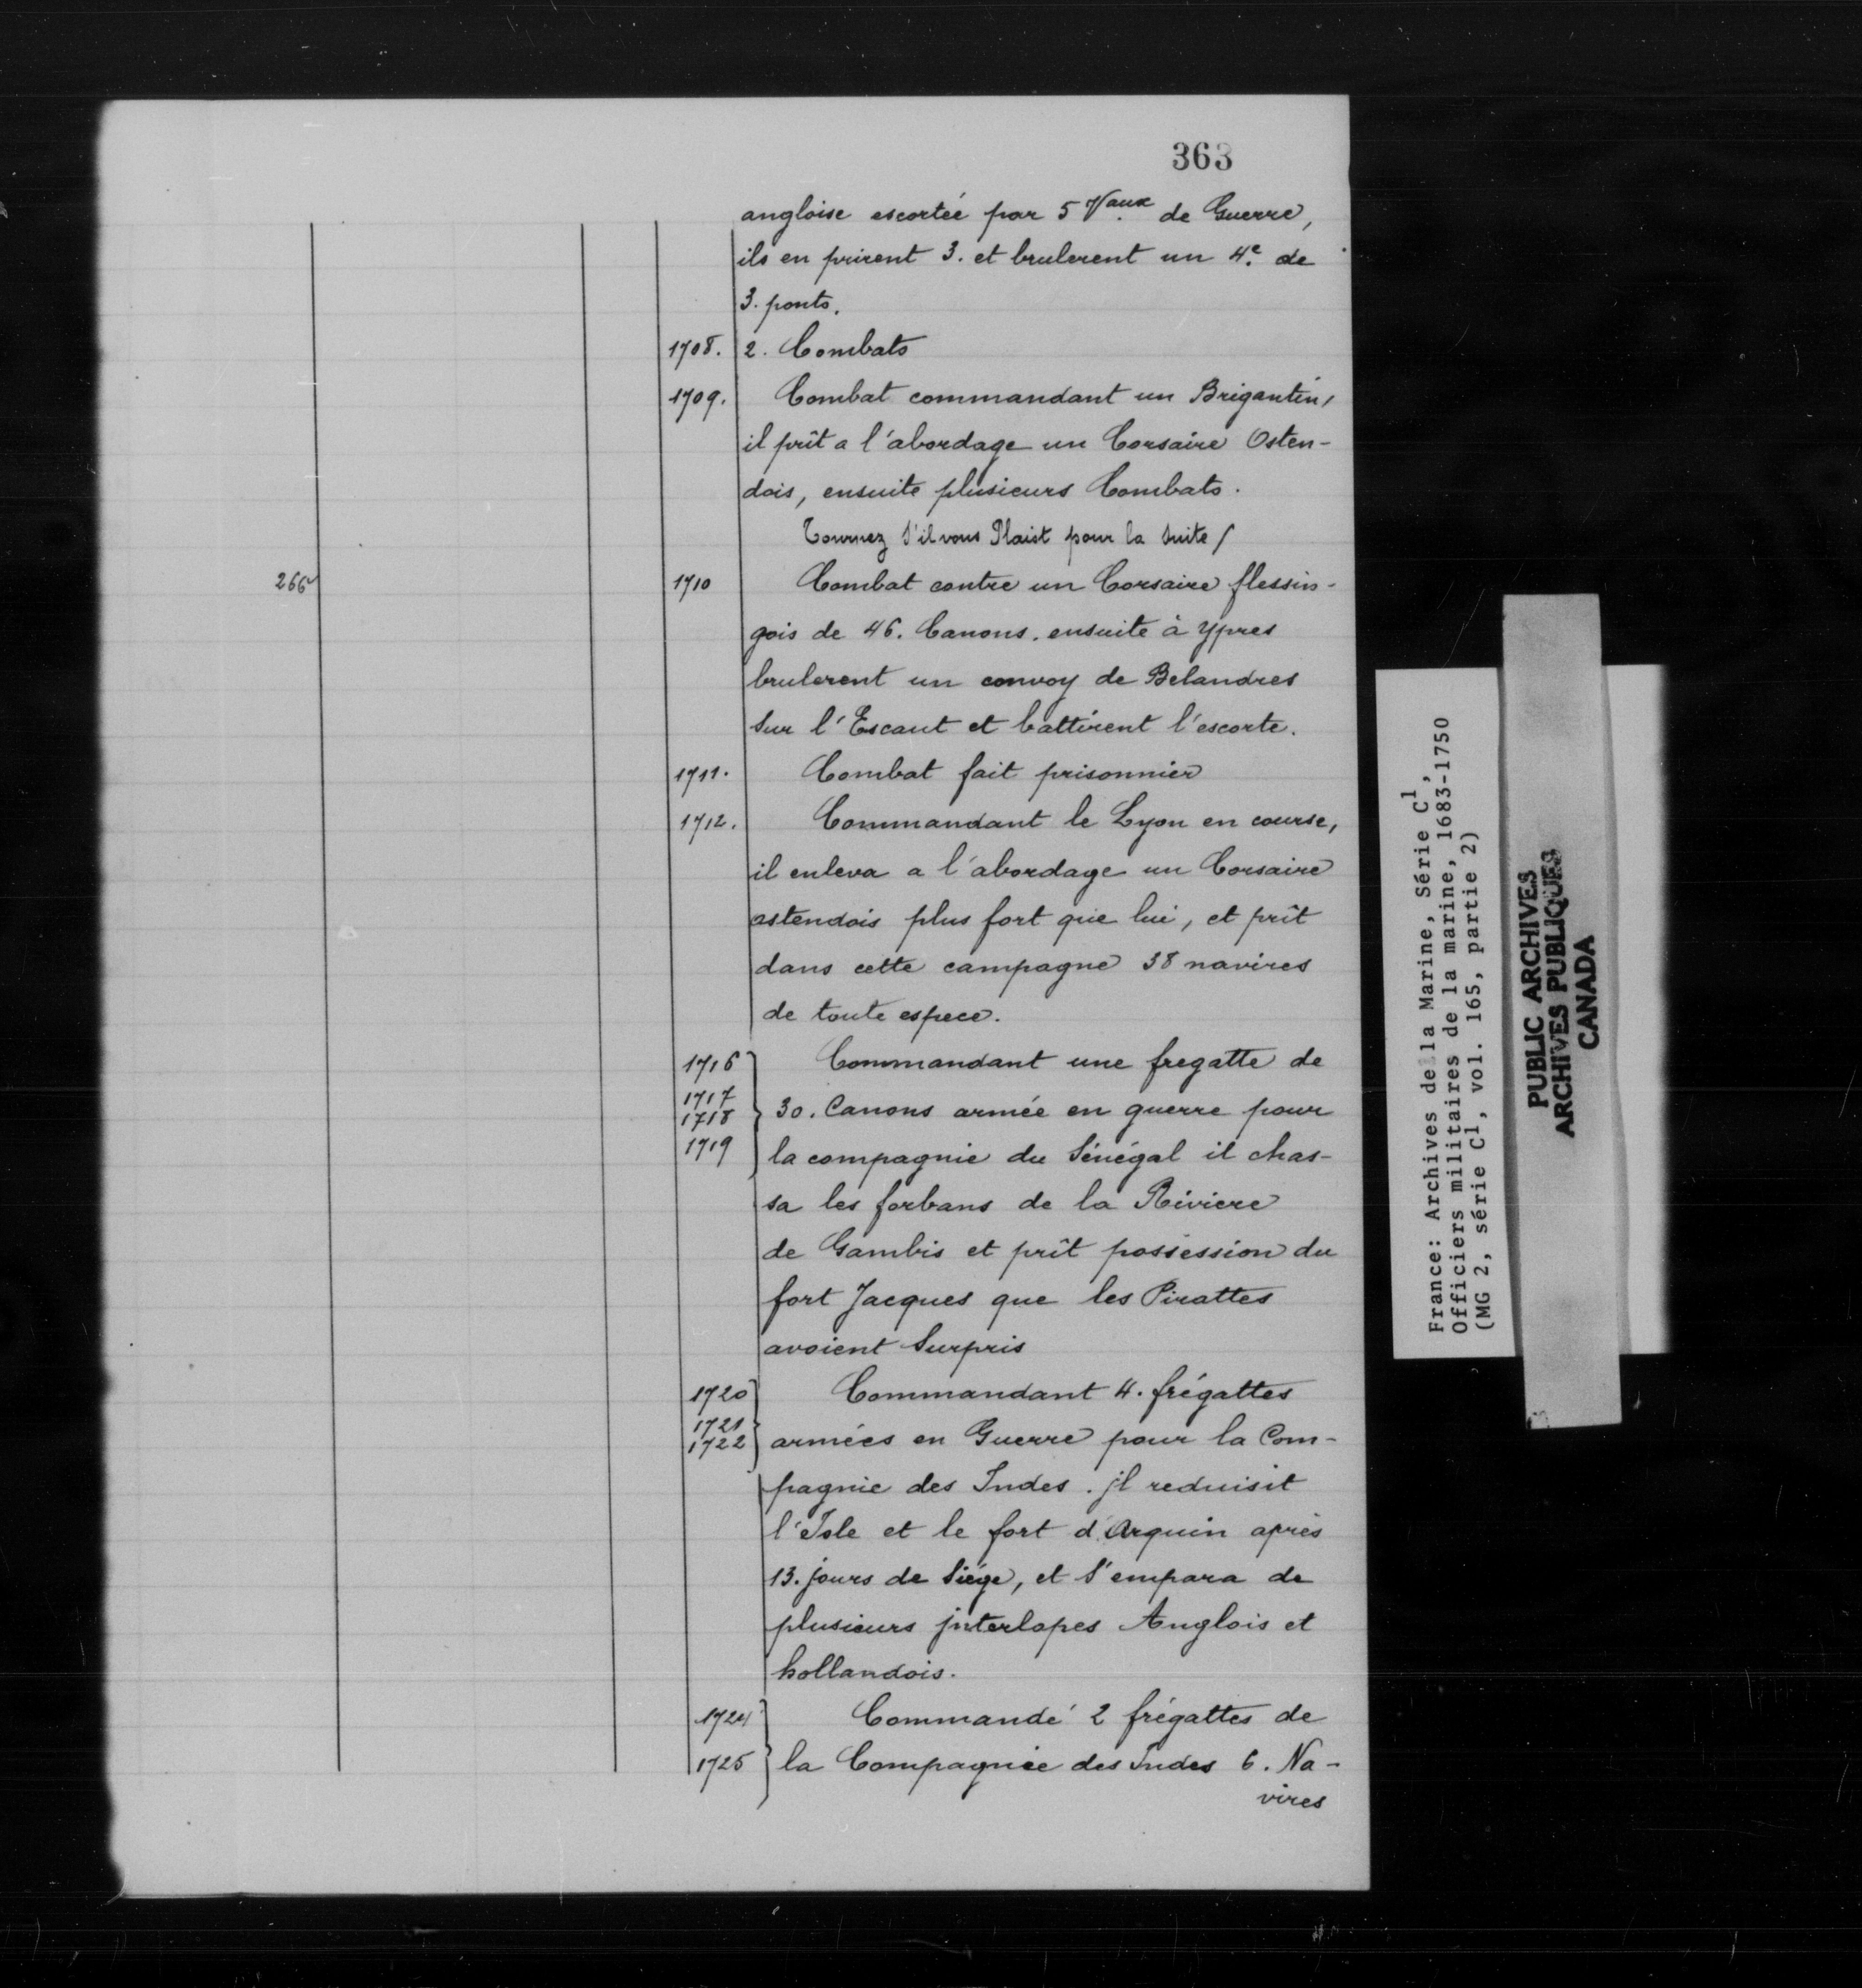 363
angloise escortée par 5 Vaux. de Guerre,
ils en prirent 3. et brulerent un 4e. de
3. ponts.
1708. 2. Combats
1709. Combat commandant un Brigantin,
il prît a l'abordage un Corsaire Osten-
dois, ensuite plusieurs Combats.
Tournez S'il vous Plaist pour la Suite /
266 1710 Combat contre un Corsaire flessin-
gois de 46. Canons. ensuite à Ypres
brulerent un convoy de Belandres
Sur l'Escaut et battirent l'escorte.
1711. Combat fait prisonnier
1712. Commandant le Lyon en course,
il enleva a l'abordage un Corsaire
ostendois plus fort que lui, et prît
dans cette campagne 38 navires
de toute espece.
1716 Commandant une fregatte de
1717
1718 30. Canons armée en guerre pour
1719 la compagnie du Sénégal il chas-
sa les forbans de la Riviere
de Gambis et prît possession du
fort Jacques que les Pirattes
avoient Surpris
1720 Commandant 4. frégattes
1721
1722 armées en Guerre pour la Com-
pagnie des Indes. jl reduisit
l'Isle et le fort d'Arguin après
13. jours de Siége, et S'empara de
plusieurs jnterlopes Anglois et
hollandois.
1724 Commandé 2 frégattes de
1725 la Compagnie des Indes 6. Na-
vires
France: Archives de la Marine, Série C1,
Officiers militaires de la marine, 1683-1750
(MG 2, série C1, vol. 165, partie 2)
PUBLIC ARCHIVES
ARCHIVES PUBLIQUES
CANADA